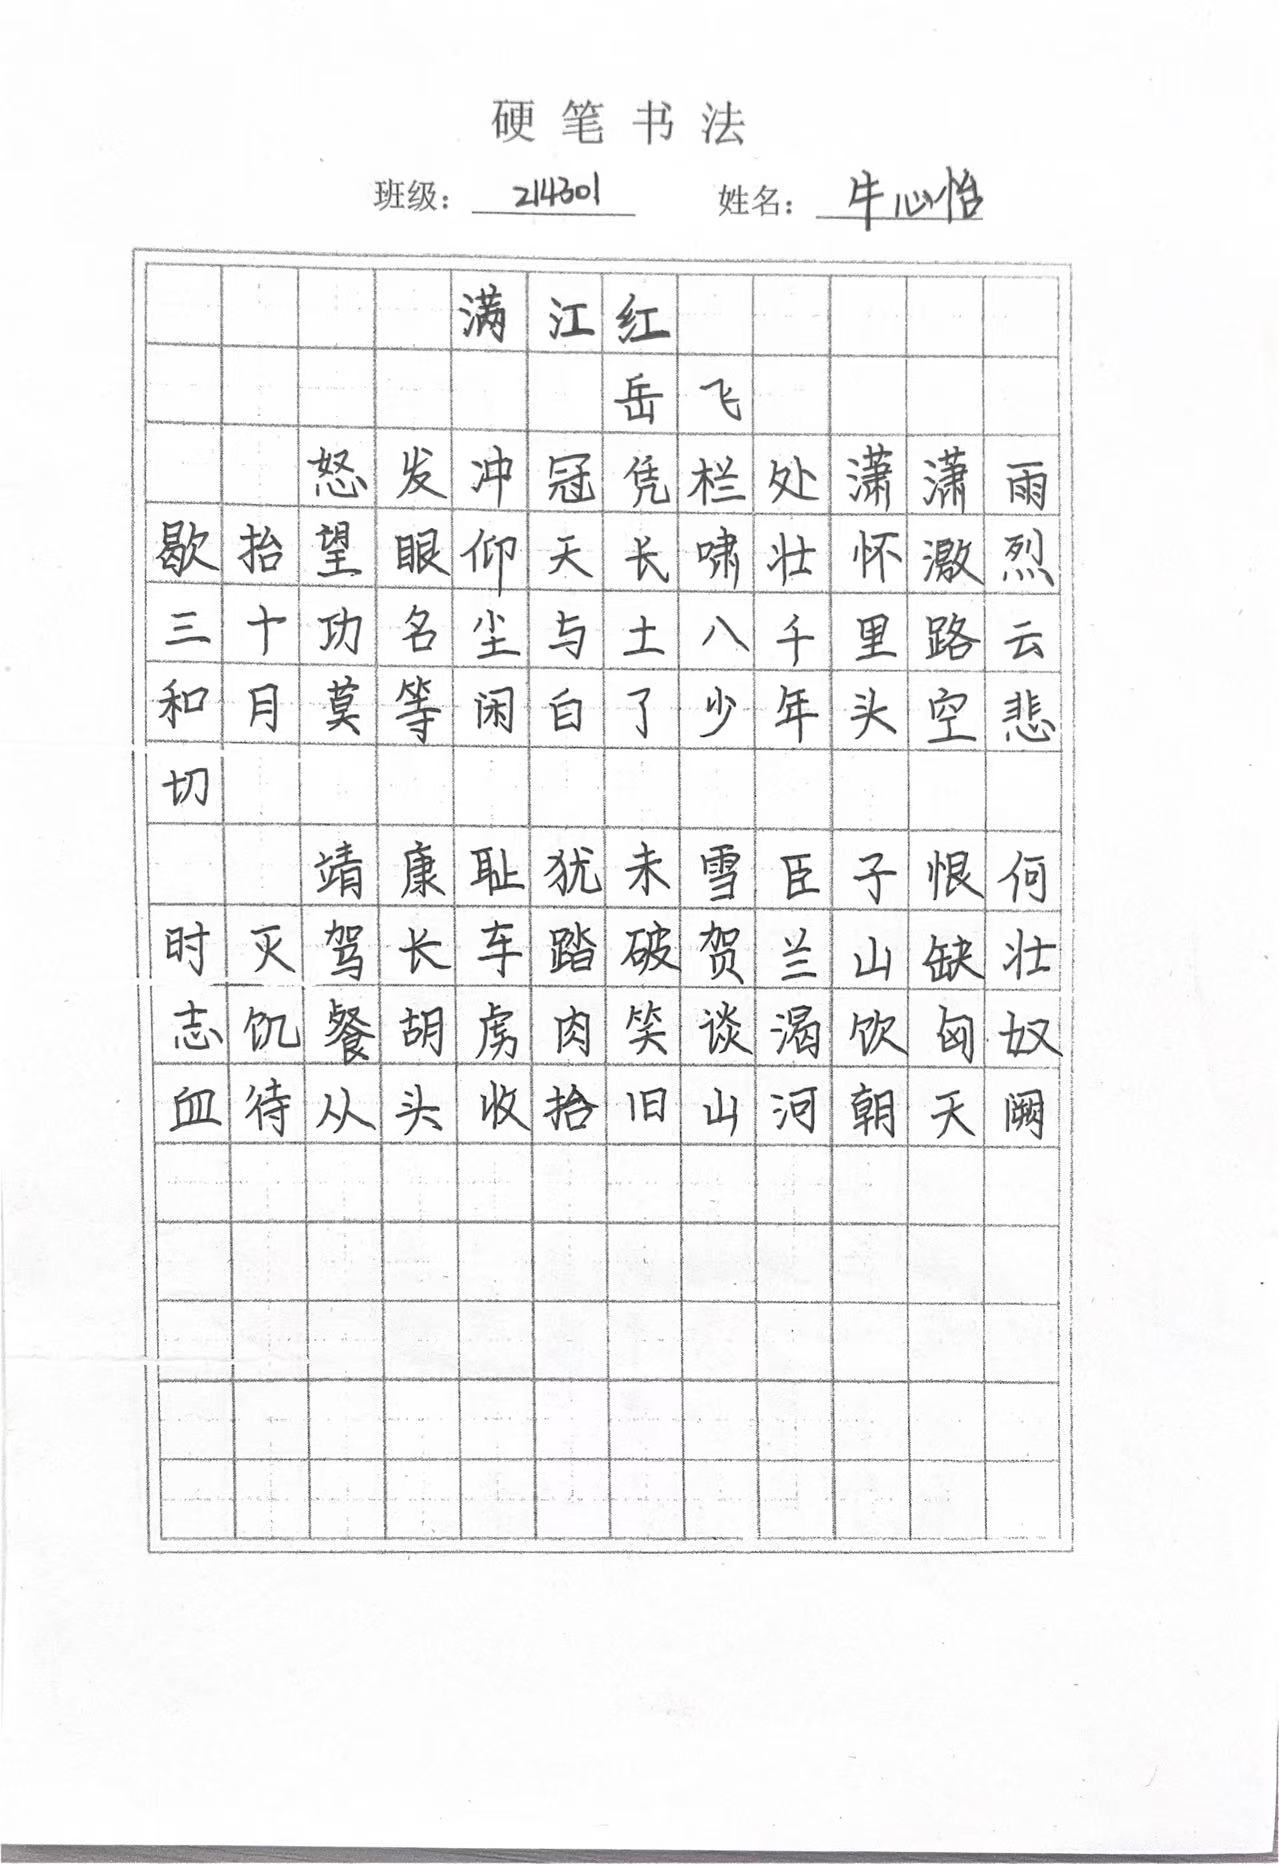 硬笔书法
班级：214301 姓名：牛心怡
满江红
岳飞
怒发冲冠凭栏处潇潇雨
歇抬望眼仰天长啸壮怀激烈
三十功名尘与土八千里路云
和月莫等闲白了少年头空悲
切
靖康耻犹未雪臣子恨何
时灭驾长车踏破贺兰山缺壮
志饥餐胡虏肉笑谈渴饮匈奴
血待从头收拾旧山河朝天阙